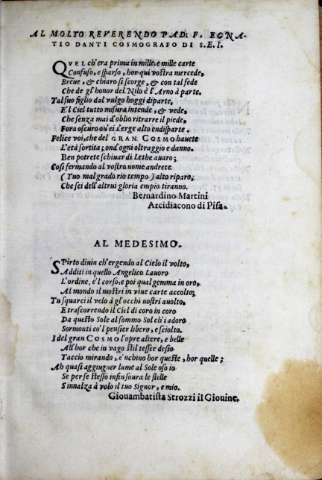 AL MOLTO REVERENDO PAD. F. EGNA-
TIO DANTI COSMOGRAFO DI S.E.I.
QVEL ch'era prima in mille, e mille carte
Confuso, e sparso, hor qui vostra mercede,
Breue, & chiaro si scorge, & con tal fede
Che de gl'honor del Nilo è l'Arno à parte.
Tal suo figlio dal vulgo hoggi diparte,
E'l Ciel tutto misura intende, & vede,
Che senza mai d'oblio ritrarre il piede,
Fora oscuro ou'ei s'erge alto endisparte.
Felice voi, che del GRAN COSMO haueste
L'età sortita; ond'ogni oltraggio e danno
Ben potrete schiuar di Lethe auaro;
Così fermando al vostro nome andrete
(Tuo mal grado rio tempo) alto riparo,
Che sei dell'altrui gloria empio tiranno.
Bernardino Martini
Arcidiacono di Pisa.
AL MEDESIMO.
SPirto diuin ch'ergendo al Cielo il volto,
Additi in quello Angelico Lauoro
L'ordine, e'l corso, e poi qual gemma in oro,
Al mondo il mostri in viue carte accolto,
Tu squarci il velo à gl'occhi nostri auolto,
E trascorrendo il Ciel di coro in coro
Da questo Sole al sommo Sole ti adoro
Sormonti co'l pensier libero, e sciolto.
I del gran COSMO l'opre altere, e belle
All'hor che in vago stil tesser desio
Taccio mirando, e'nchino hor queste, hor quelle;
Ah quasi aggiugner lume al Sole os'io
Se per se stesso infin soura le stelle
S'innalza à volo il tuo Signor, e mio.
Giouambatista Strozzi il Giouine.